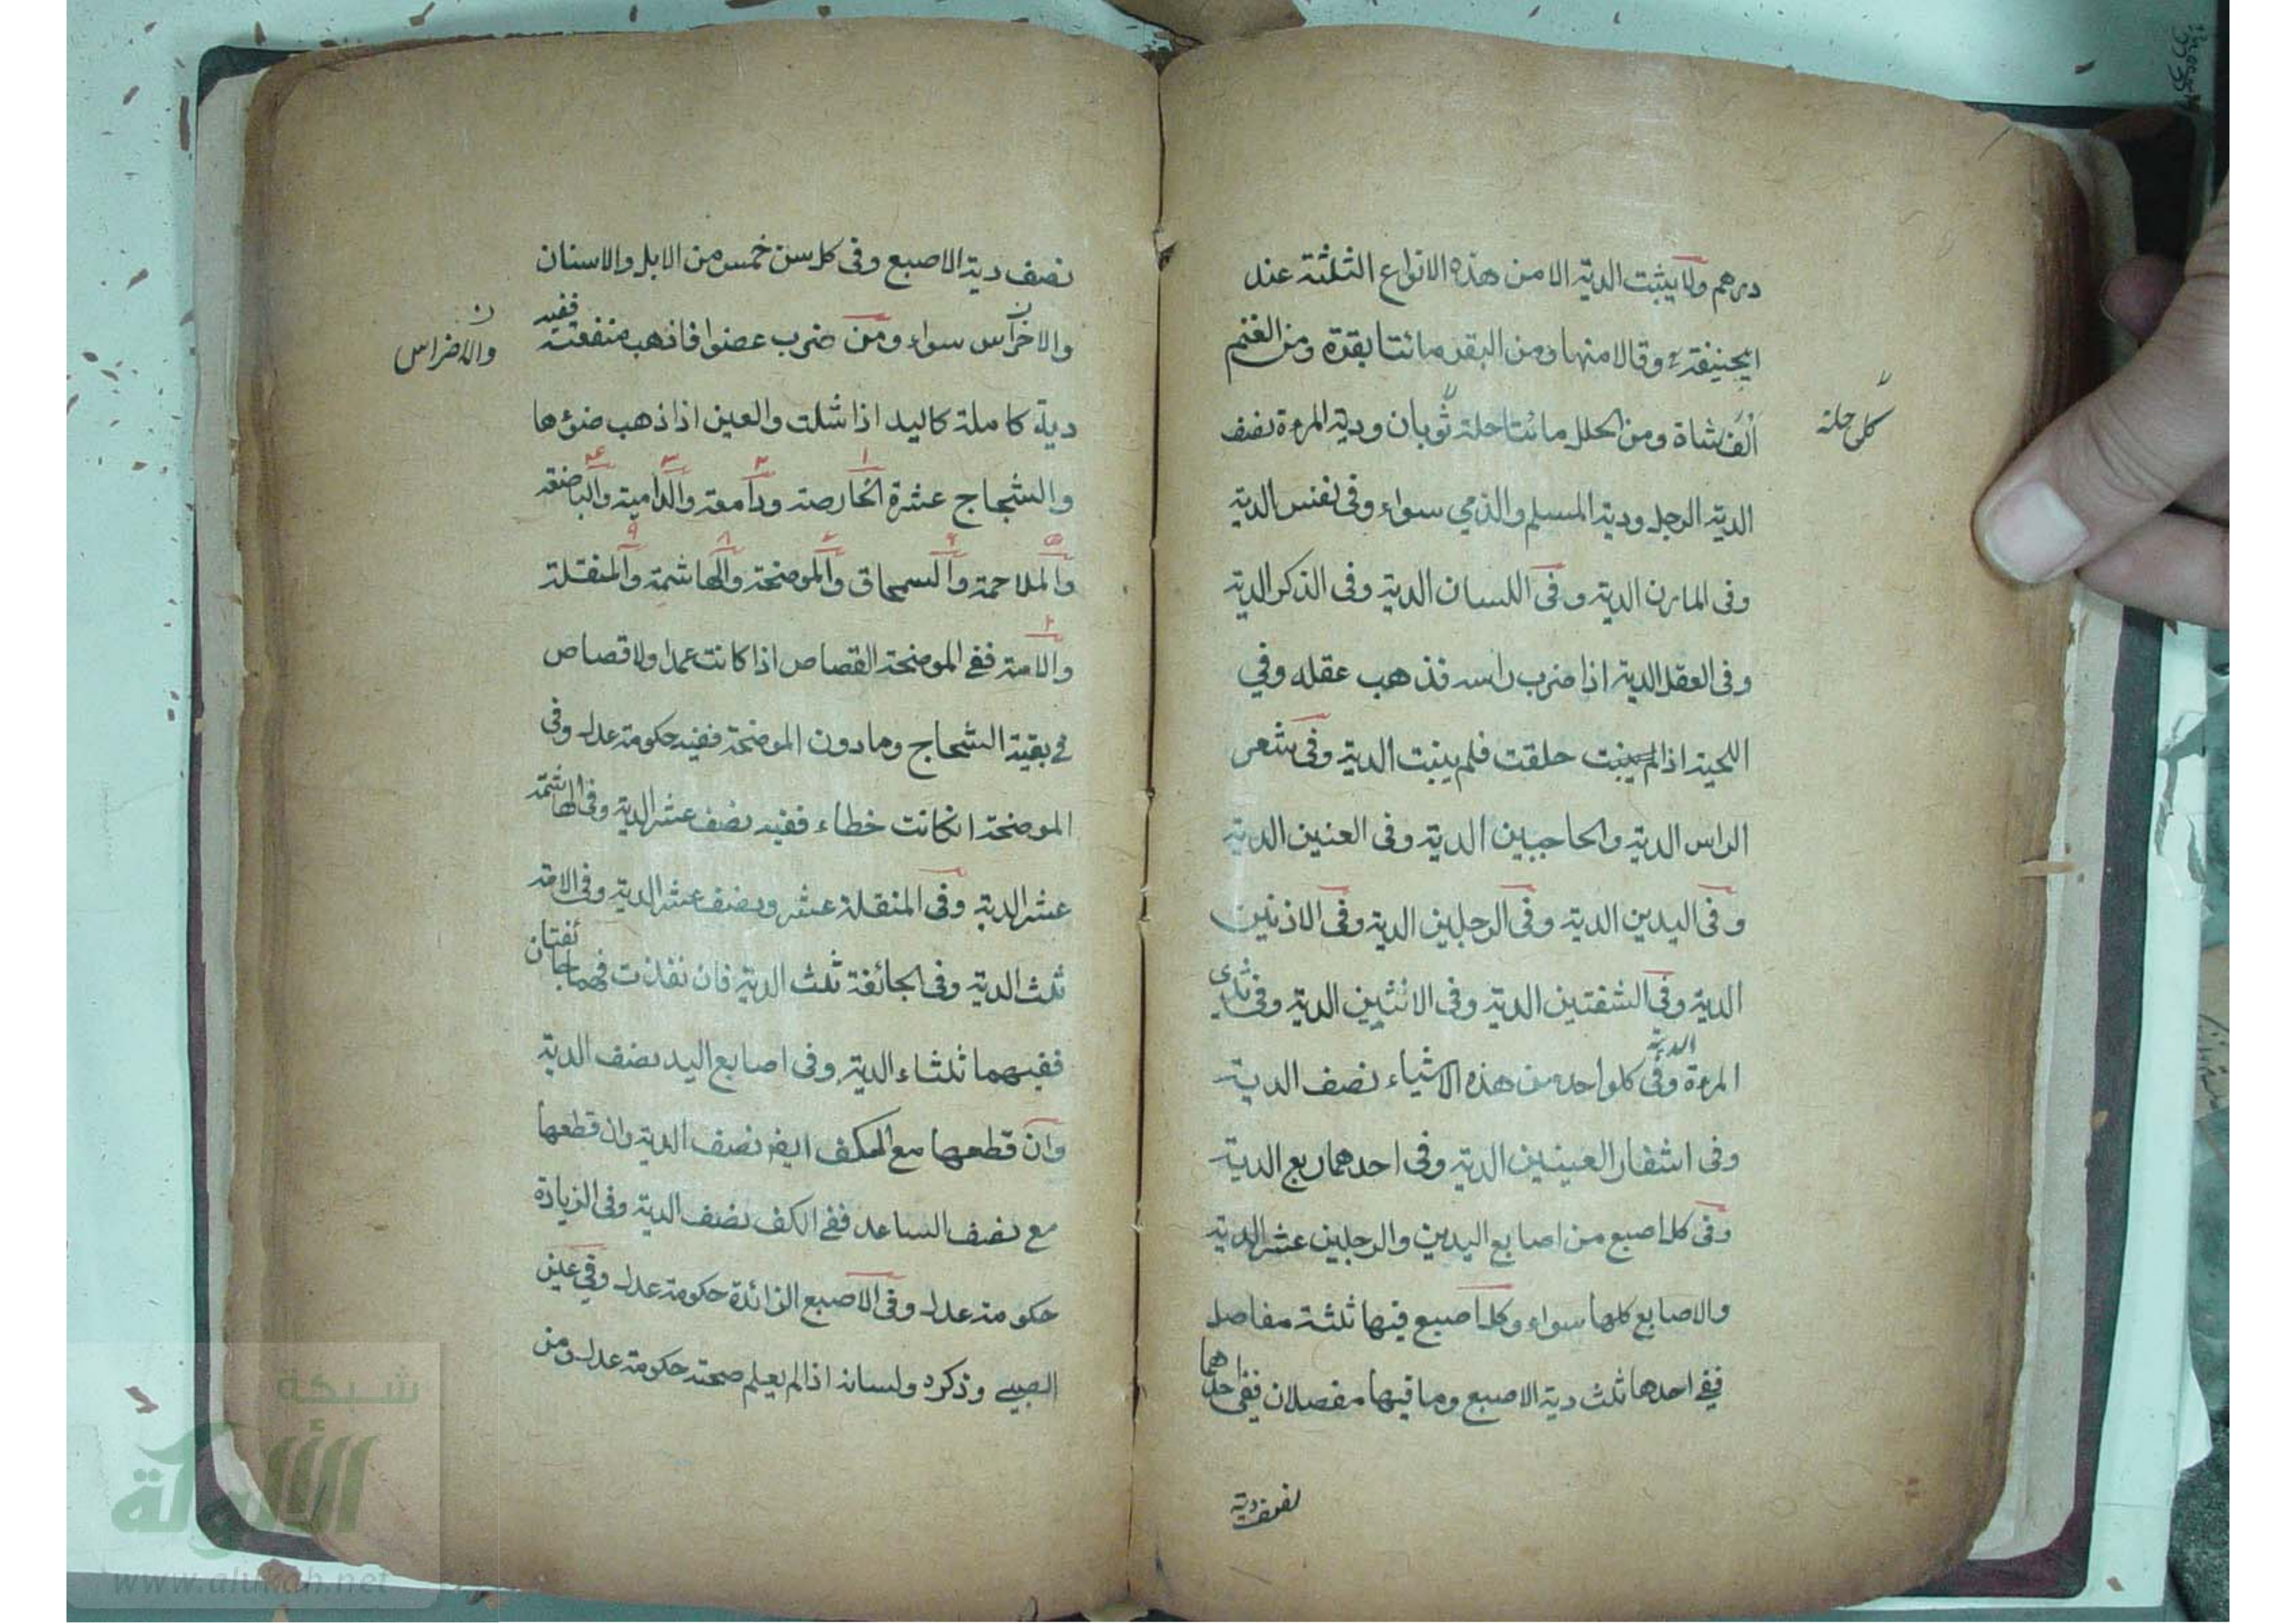 درهم ولا يثبت الدية الا من هذه الانواع الثلثة عند
ابيحنيفة وقالا منها ومن البقر مائتا بقرة ومن الغنم
الف شاة ومن الحلل مائتا حلة ثوبان ودية المرءة نصف
كل حلة
الدية الرجل ودية المسلم والذمي سواء وفى نفس الدية
وفى المارن الدية وفى اللسان الدية وفى الذكر الدية
وفى العقل الدية اذا ضرب راسه فذهب عقله وفي
اللحية اذا لم ينبت حلقت فلم ينبت الدية وفى شعر
الراس الدية والحاجبين الدية وفى العنين الدية
وفى اليدين الدية وفى الرجلين الدية وفى الاذنين
الدية وفى الشفتين الدية وفى الانثيين الدية وفى ثدى
المرءة الدية وفى كلواحد من هذه الاشياء نصف الدية
وفى اشفار العينين الدية وفى احدهما ربع الدية
وفى كل اصبع من اصابع اليدين والرجلين عشر الدية
والاصابع كلها سواء وكل اصبع فيها ثلثة مفاصل
ففى احدها ثلث دية الاصبع وما فيها مفصلان ففى احدهما
نصف دية
نصف دية الاصبع وفى كل سن خمس من الابل والاسنان
والاخراس سواء ومن ضرب عضوا فاذهب منفعته ففيه
والاضراس
دية كاملة كاليد اذا شلت والعين اذا ذهب ضوءها
والشجاج عشرة الخارصة ودامعة والدامية والباضعة
والملاحمة والسمحاق والموضحة والهاشمة والمنقلة
والامة ففى الموضحة القصاص اذا كانت عمدا ولا قصاص
فى بقية الشجاج وما دون الموضحة ففيه حكومة عدل وفى
الموضحة انكانت خطاء ففيه نصف عشر الدية وفى الهاشمة
عشر الدية وفى المنقلة عشر ونصف عشر الدية وفى الامة
ثلث الدية وفى الجائفة ثلث الدية فان نفذت فهما جائفتان
ففيهما ثلثاء الدية وفى اصابع اليد نصف الدية
وان قطعها مع الكف ايضا نصف الدية وان قطعها
مع نصف الساعد ففى الكف نصف الدية وفى الزيادة
حكومة عدل وفى الاصبع الزائدة حكومة عدل وفي عين
الصبي وذكره ولسانه اذا لم يعلم صحته حكومة عدل ومن
شبكة
الألوكة
www.alukah.net